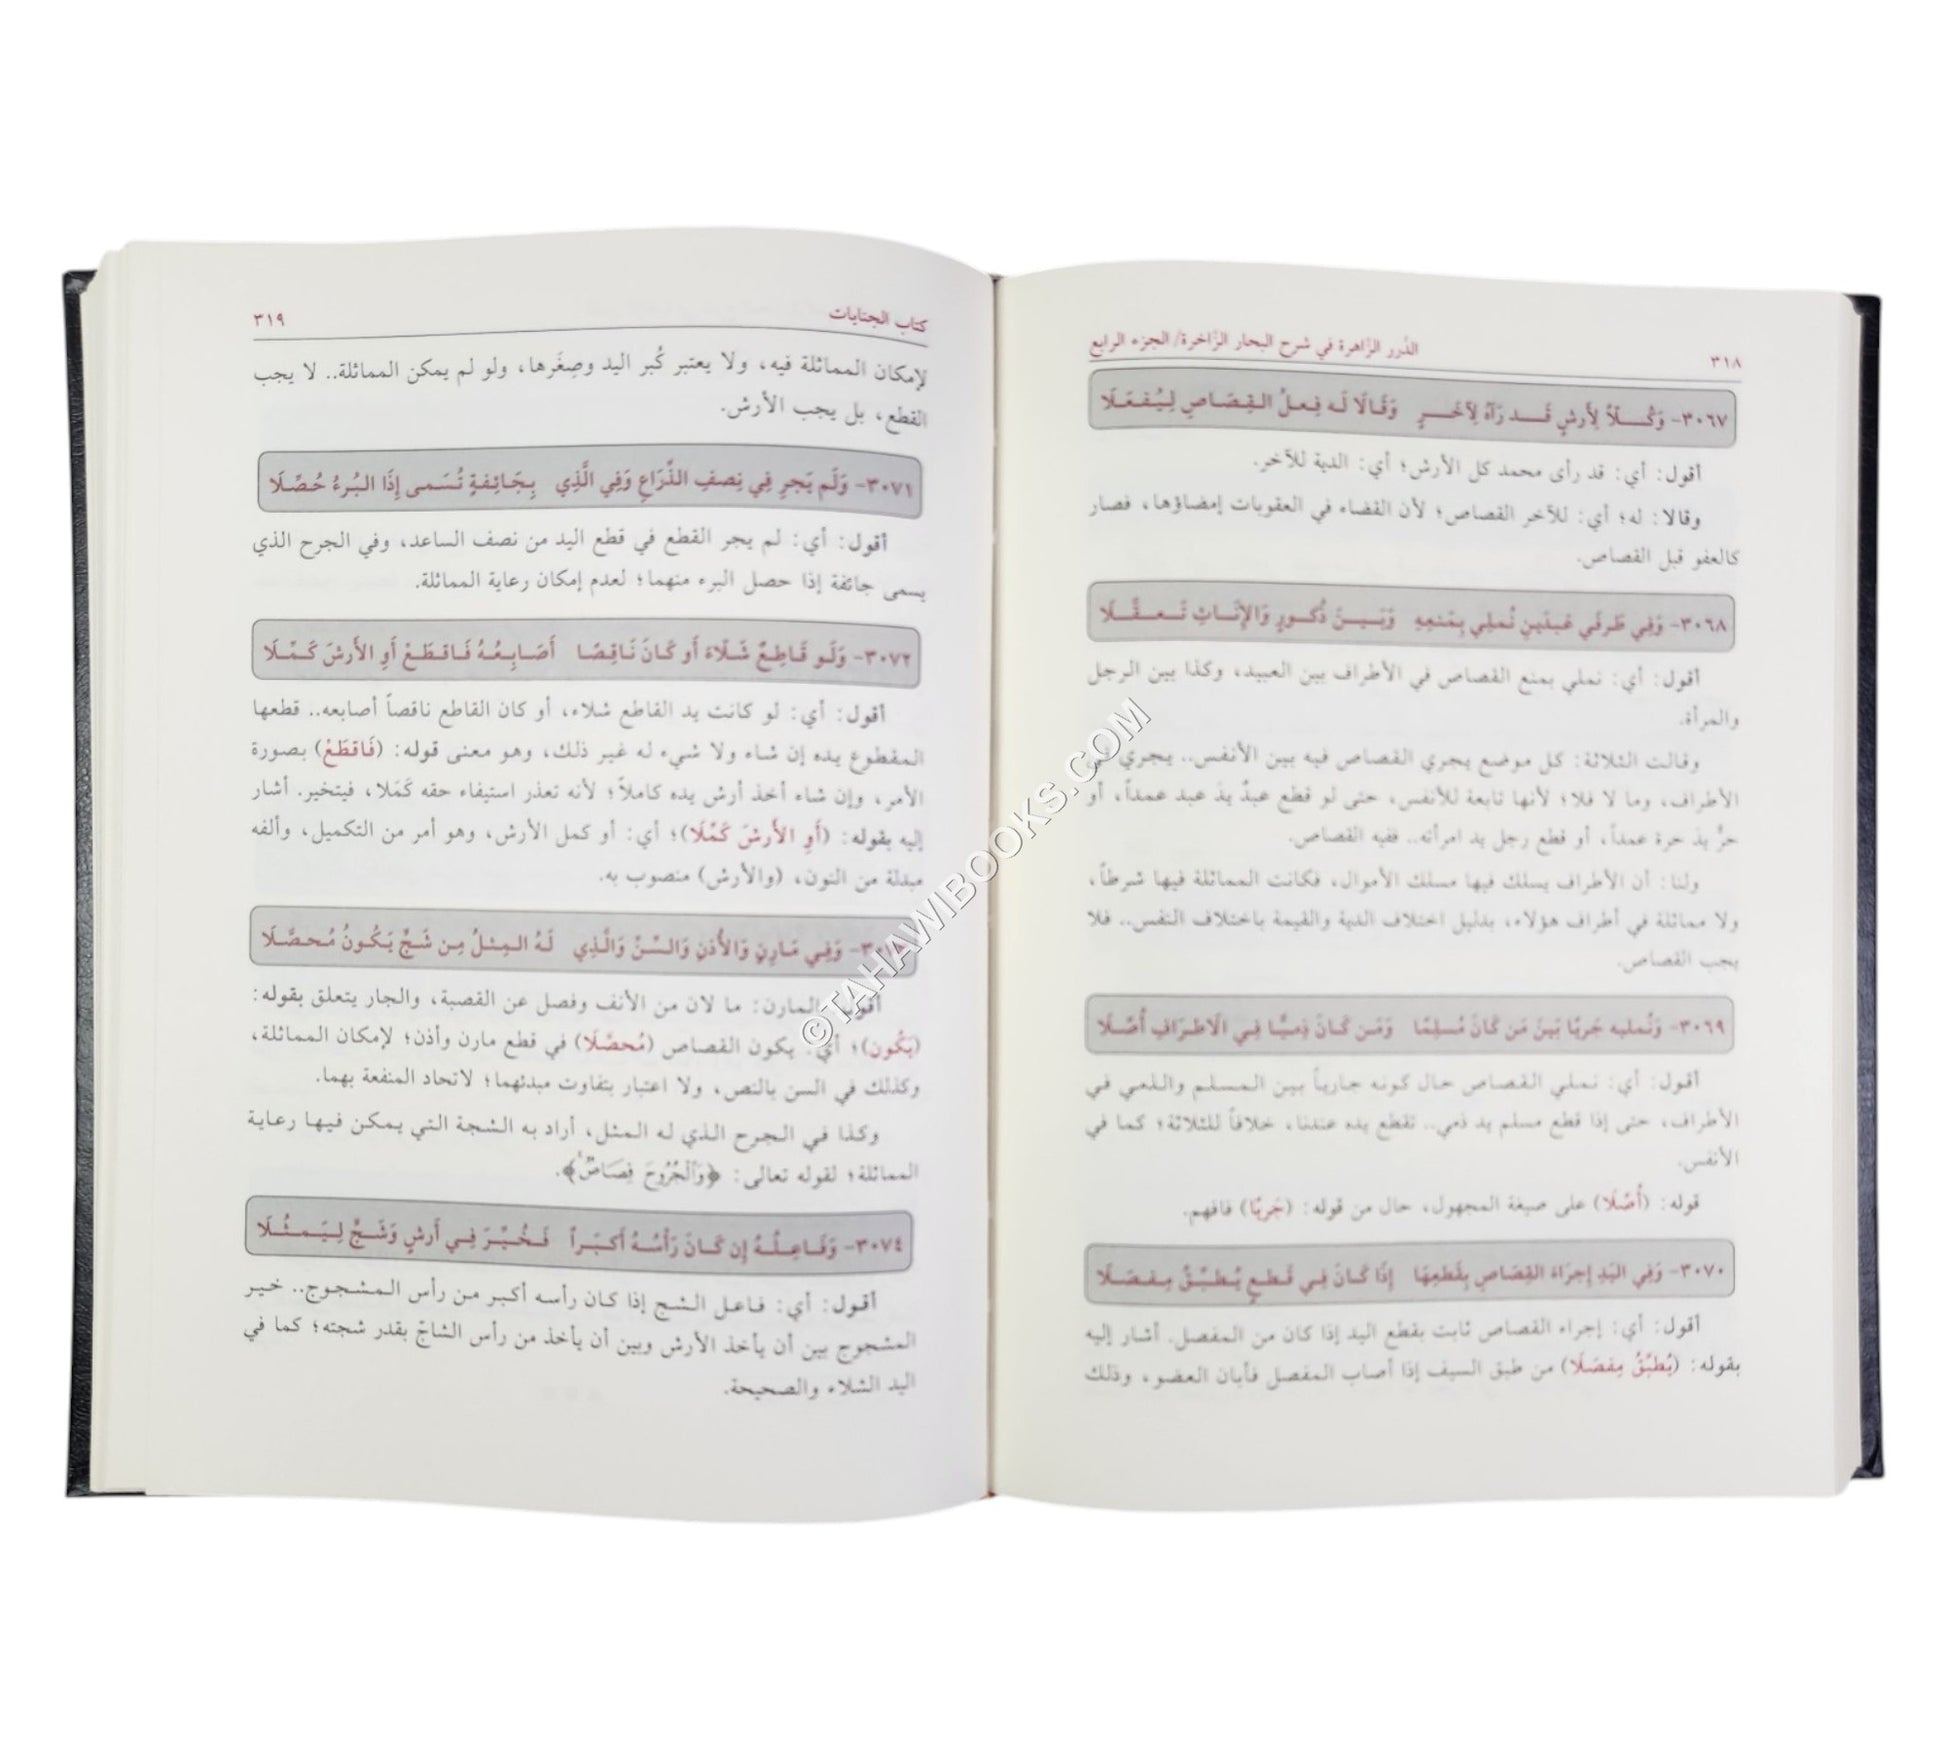 ٣١٨
الدُّرر الزَّاهرة في شرح البحار الزَّاخرة/ الجزء الرابع
٣٠٦٧- وَكُـلًّا لِأَرشٍ قَـد رَآهُ لِآخَـرٍ وَقَالَا لَه فِعلُ القِصَاصِ لِيُفعَلَا
أقول: أي: قد رأى محمد كل الأرش؛ أي: الدية للآخر.
وقالا: له؛ أي: للآخر القصاص؛ لأن القضاء في العقوبات إمضاؤها، فصار
كالعفو قبل القصاص.
٣٠٦٨- وَفِي طَرفَي عَبدَينِ نُملِي بِمَنعِهِ وَبَـيـنَ ذُكُـورٍ وَالإِنَـاثِ تَـعـقَّـلَا
أقول: أي: نملي بمنع القصاص في الأطراف بين العبيد، وكذا بين الرجل
والمرأة.
وقالت الثلاثة: كل موضع يجري القصاص فيه بين الأنفس.. يجري في
الأطراف، وما لا فلا؛ لأنها تابعة للأنفس، حتى لو قطع عبدٌ يدَ عبد عمداً، أو
حرٌّ يدَ حرة عمداً، أو قطع رجل يد امرأته.. ففيه القصاص.
ولنا: أن الأطراف يسلك فيها مسلك الأموال، فكانت المماثلة فيها شرطاً،
ولا مماثلة في أطراف هؤلاء، بدليل اختلاف الدية والقيمة باختلاف النفس.. فلا
يجب القصاص.
٣٠٦٩- وَنُمليه جَريًا بَينَ مَن كَانَ مُسلِمًا وَمَن كَانَ ذِميًّا فِي الَاطرَافِ أُصِّلَا
أقول: أي: نملي القصاص حال كونه جارياً بين المسلم والذمي في
الأطراف، حتى إذا قطع مسلم يد ذمي.. تقطع يده عندنا، خلافاً للثلاثة؛ كما في
الأنفس.
قوله: (أُصِّلَا) على صيغة المجهول، حال من قوله: (جَريًا) فافهم.
٣٠٧٠- وَفِي اليَدِ إِجرَاءُ القِصَاصِ بِقَطعِهَا إِذَا كَانَ فِي قَطعٍ يُطَبِّقُ مِفصَلَا
أقول: أي: إجراء القصاص ثابت بقطع اليد إذا كان من المفصل. أشار إليه
بقوله: (يُطَبِّقُ مِفصَلَا) من طبق السيف إذا أصاب المفصل فأبان العضو، وذلك
كتاب الجنايات
٣١٩
لإمكان المماثلة فيه، ولا يعتبر كُبر اليد وصِغَرها، ولو لم يمكن المماثلة.. لا يجب
القطع، بل يجب الأرش.
٣٠٧١- وَلَم يَجرِ فِي نِصفِ الذِّرَاعِ وَفِي الَّذِي بِجَائِفةٍ تُسَمى إِذَا البُرءُ حُصِّلَا
أقول: أي: لم يجر القطع في قطع اليد من نصف الساعد، وفي الجرح الذي
يسمى جائفة إذا حصل البرء منهما؛ لعدم إمكان رعاية المماثلة.
٣٠٧٢- وَلَو قَاطِعٌ شَلَّاءَ أَو كَانَ نَاقِصًا أَصَـابِـعُـهُ فَـاقـطَـعْ أَوِ الأَرشَ كَـمِّـلَا
أقول: أي: لو كانت يد القاطع شلاء، أو كان القاطع ناقصاً أصابعه.. قطعها
المقطوع يده إن شاء ولا شيء له غير ذلك، وهو معنى قوله: (فَاقطَعْ) بصورة
الأمر، وإن شاء أخذ أرش يده كاملاً؛ لأنه تعذر استيفاء حقه كَمَلا، فيتخير. أشار
إليه بقوله: (أَوِ الأَرشَ كَمِّلَا)؛ أي: أو كمل الأرش، وهو أمر من التكميل، وألفه
مبدلة من النون، (والأرش) منصوب به.
وَفِي مَارِنٍ وَالأُذنِ وَالسِّنِّ وَالَّذِي لَهُ المِثلُ مِن شَجٍّ يَكُونُ مُحصَّلَا
أقول: المارن: ما لان من الأنف وفصل عن القصبة، والجار يتعلق بقوله:
(يَكُون)؛ أي: يكون القصاص (مُحصَّلَا) في قطع مارن وأذن؛ لإمكان المماثلة،
وكذلك في السن بالنص، ولا اعتبار بتفاوت مبدئهما؛ لاتحاد المنفعة بهما.
وكذا في الجرح الذي له المثل، أراد به الشجة التي يمكن فيها رعاية
المماثلة؛ لقوله تعالى: ﴿وَالْجُرُوحَ قِصَاصٌ﴾.
٣٠٧٤- وَفَـاعِـلُـهُ إِن كَـانَ رَأسُـهُ أَكبَـراً فَـخُـيِّـرَ فِـي أَرشٍ وَشَـجٍّ لِـيَـمـثُـلَا
أقول: أي: فاعل الشج إذا كان رأسه أكبر من رأس المشجوج.. خير
المشجوج بين أن يأخذ الأرش وبين أن يأخذ من رأس الشاجّ بقدر شجته؛ كما في
اليد الشلاء والصحيحة.
©TAHAWIBOOKS.COM